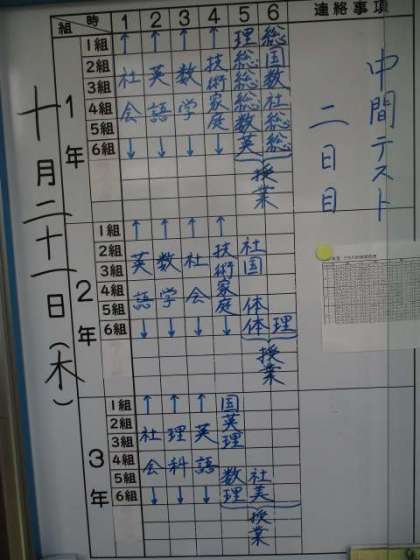 組 時 1 2 3 4 5 6 連絡事項
十月二十一日(木)
中間テスト
二日目
1年
1組 ↑ ↑ ↑ ↑ 理 総
2組 社 英 数 技 総 国
3組 術 総 数
4組 会 語 学 家 総 社
5組 庭 数 総
6組 ↓ ↓ ↓ ↓ 英 総
授業
2年
1組 ↑ ↑ ↑ ↑
2組 英 数 社 技 社
3組 術 国
4組 語 学 会 家
5組 庭 体
6組 ↓ ↓ ↓ ↓ 体 理
授業
3年
1組 ↑ ↑ ↑ 国
2組 社 理 英 英
3組 理
4組 会 科 語
5組 数 社
6組 ↓ ↓ ↓ 理 美
授業